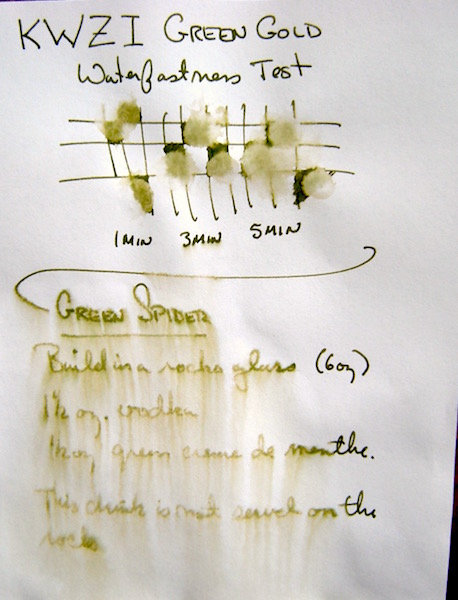 KWZI GREEN GOLD
Waterfastness Test
1 MIN 3 MIN 5 MIN
GREEN SPIDER
Build in a rocks glass (6oz)
1½ oz. vodka
1½ oz green creme de menthe.
This drink is not served on the
rocks